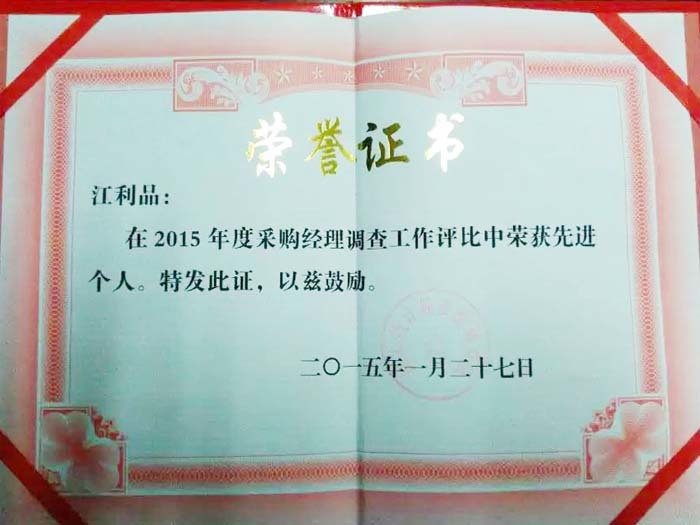 荣誉证书
江利品：
在2015年度采购经理调查工作评比中荣获先进
个人。特发此证，以兹鼓励。
二〇一五年一月二十七日